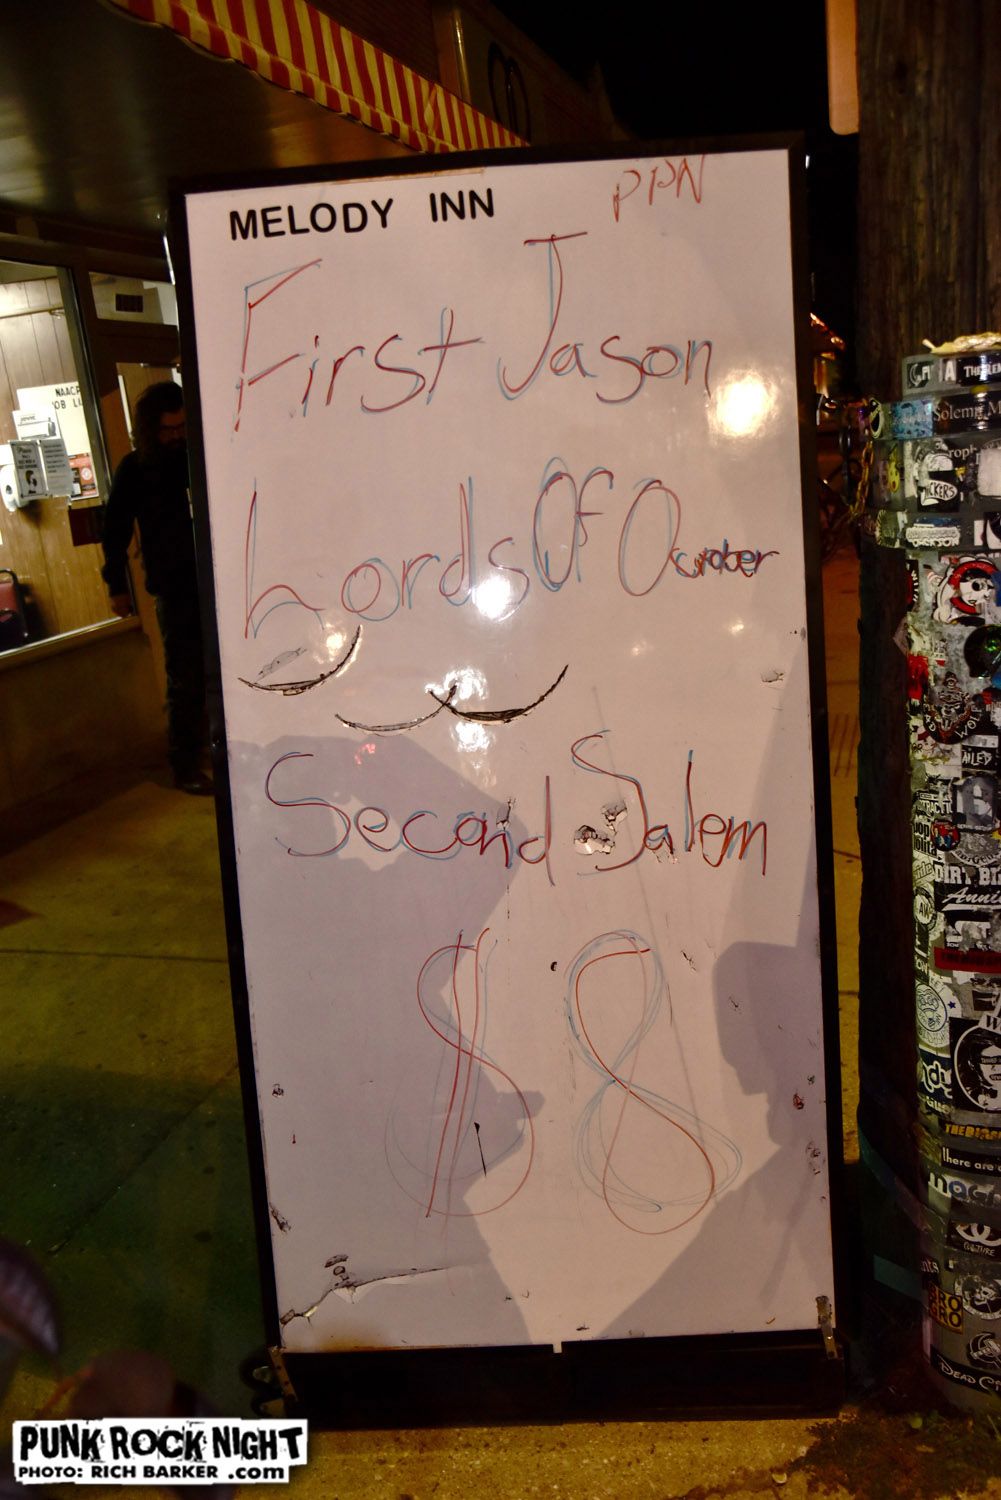 MELODY INN
PPN
First Jason
Lords Of October
Second Salem
$8
NAACP
Solemn
DIRT
CULTURE
DEAD
PUNK ROCK NIGHT
PHOTO: RICH BARKER .com